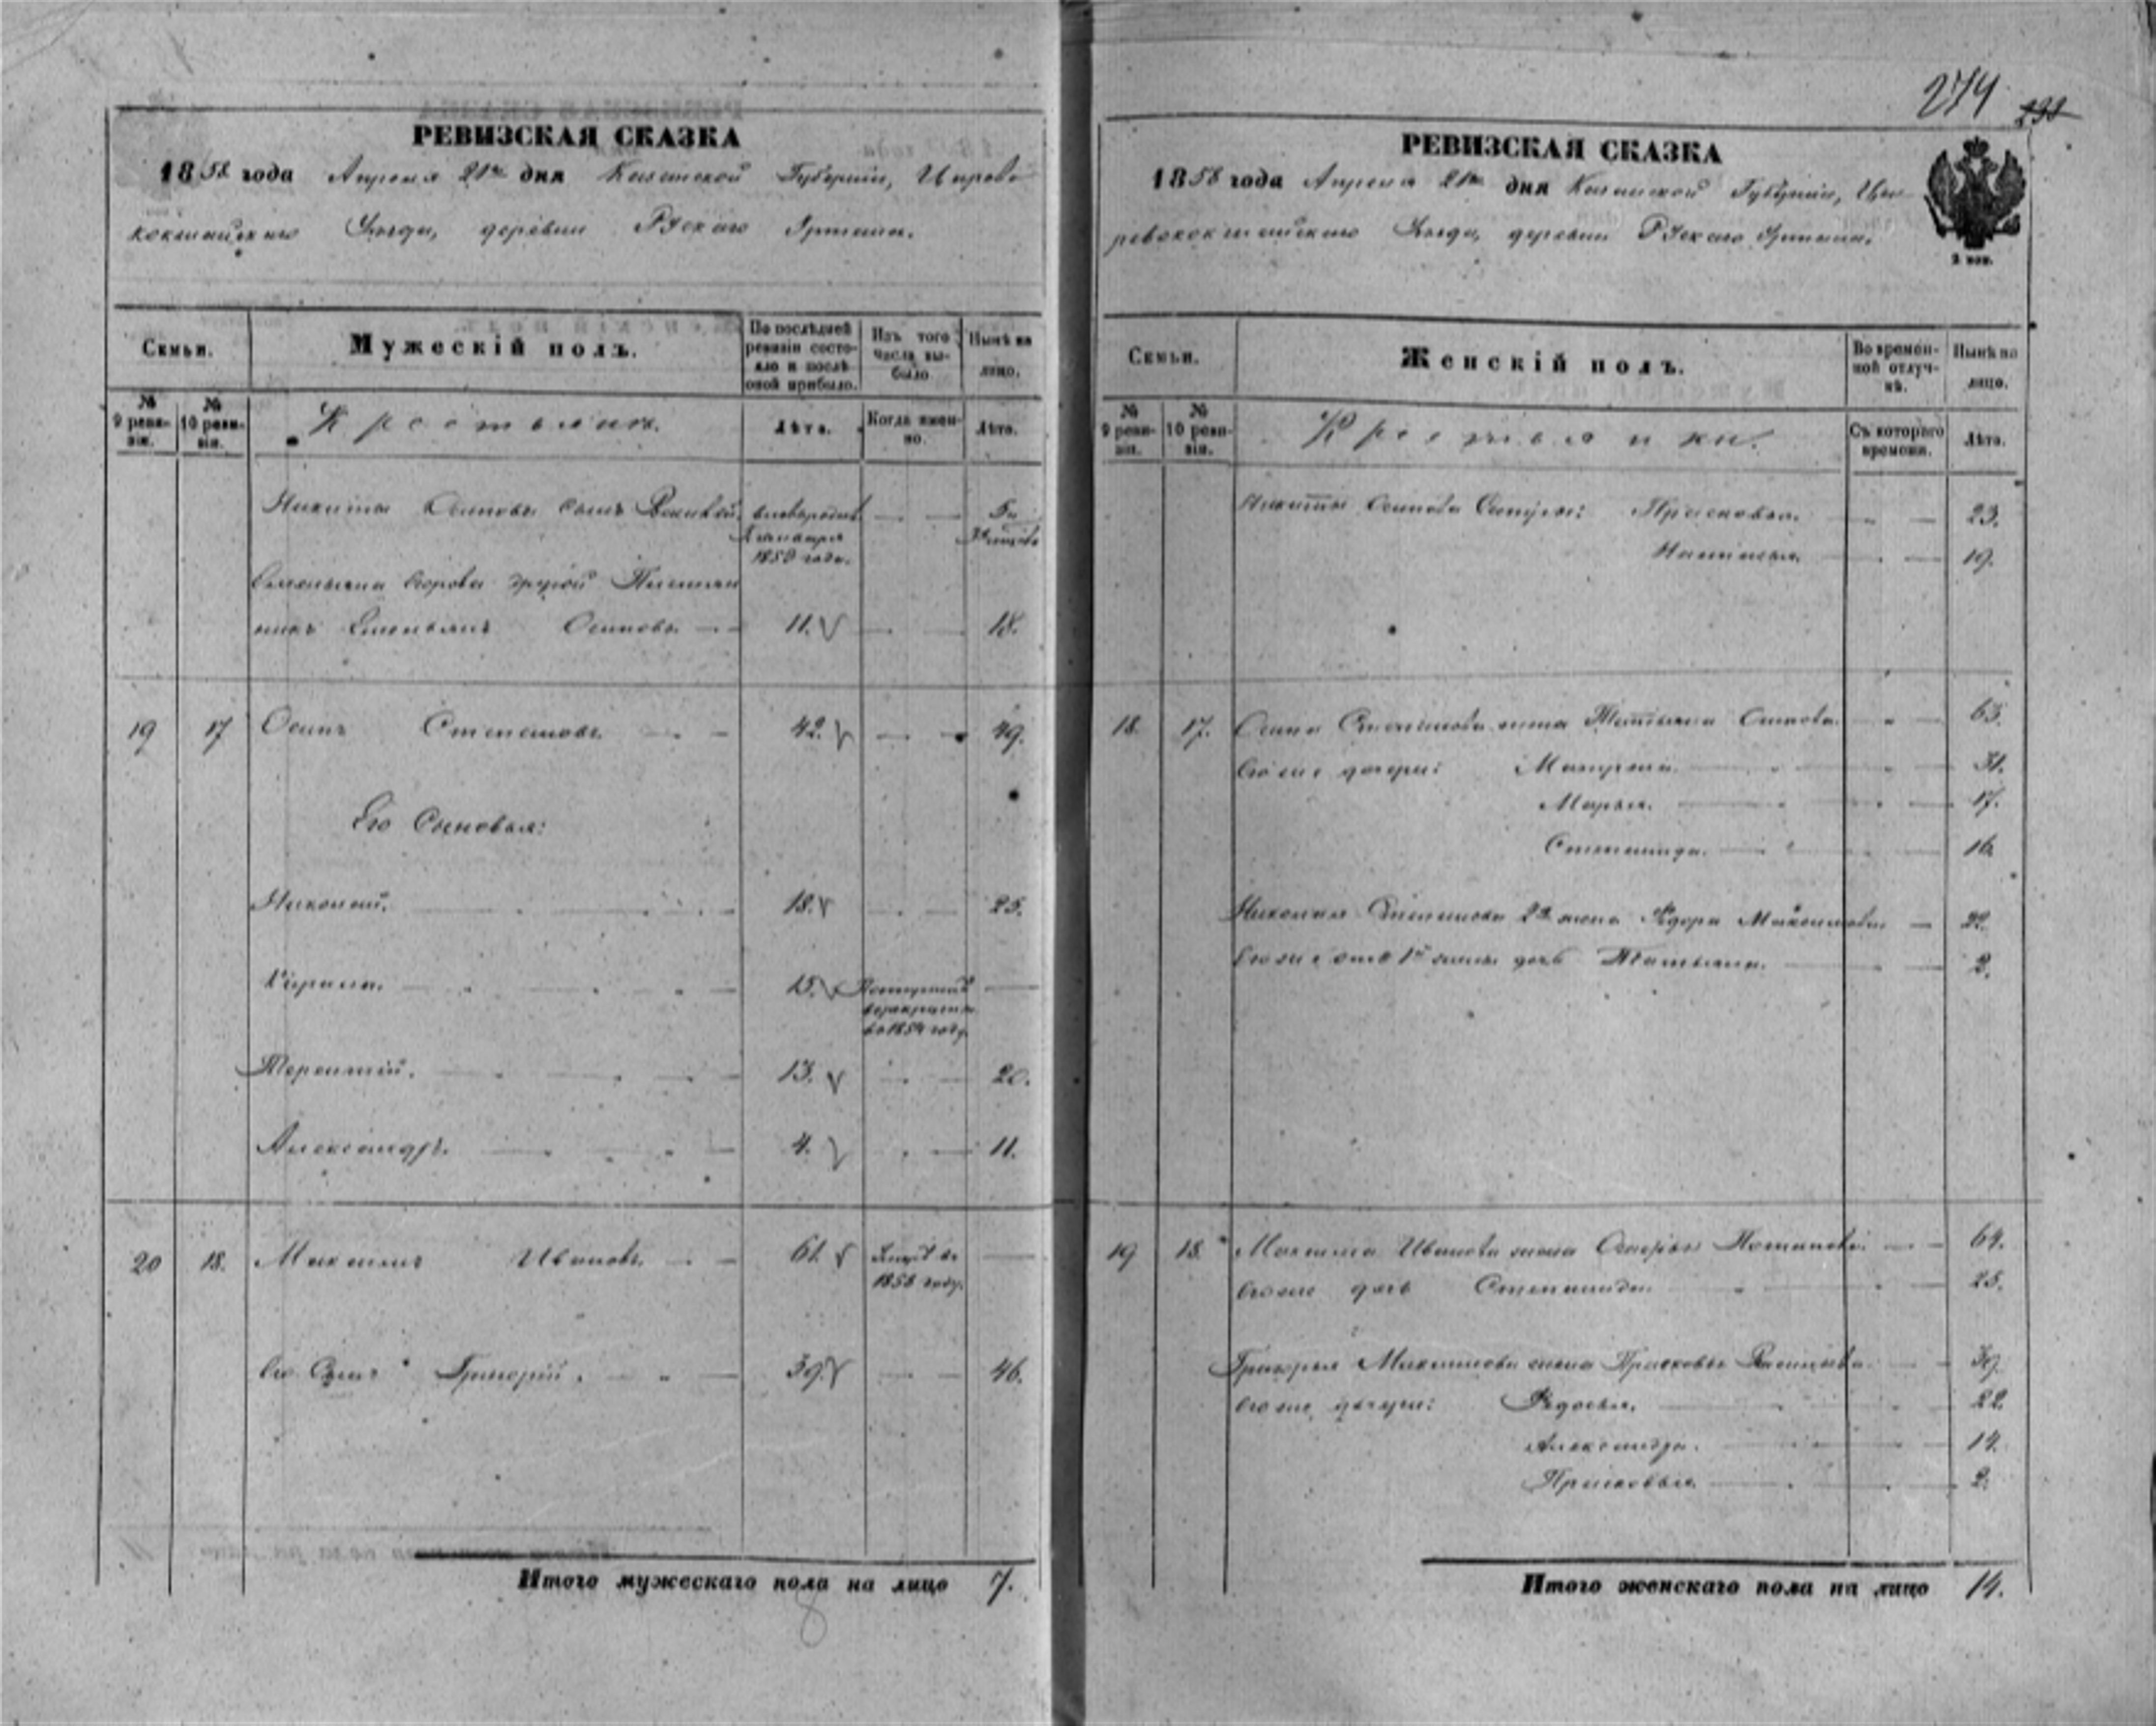 274
РЕВИЗСКАЯ СКАЗКА
1858 года Апреля 21го дня Казанской Губерніи, Царево
кокшайскаго Уѣзда, деревни
Семьи.
Мужескій полъ.
По послѣдней ревизіи состояло и послѣ оной прибыло.
Изъ того числа выбыло.
Нынѣ на лицо.
№ 9 ревизіи.
№ 10 ревизіи.
Крестьяне.
Лѣта.
Когда именно.
Лѣта.
Никиты Осипова сынъ
1850 года.
Осиповъ 11. 18.
19 17 Осипъ Степановъ 42. 49.
Его Сыновья:
Николай. 18. 25.
Кирила. 15.
в 1854 году
Терентій. 13. 20.
Александръ. 4. 11.
20 18. Максимъ Ивановъ 61. Умеръ въ
1858 году.
Его Сынъ Григорій. 39. 46.
Итого мужескаго пола на лицо 7.
8
РЕВИЗСКАЯ СКАЗКА
1858 года Апреля 21го дня Казанской Губерніи, Ца
ревококшайскаго Уѣзда, деревни
2 коп.
Семьи.
Женскій полъ.
Во временной отлучкѣ.
Нынѣ на лицо.
№ 9 ревизіи.
№ 10 ревизіи.
Крестьянки.
Съ котораго времени.
Лѣта.
Никиты Осипова Сестры: Прасковья. 23.
Настасья. 19.
18. 17. Осипа Степанова жена Татьяна 63.
Его же дочери: 31.
Марья. 17.
Степанида. 16
2я жена Максимова 22.
Его же отъ 1й жены дочь Татьяна. 2.
19 18. Максима Иванова жена 64.
Его же дочь Степанида 25.
Григорья Максимова жена Прасковья 39.
Его же дочери: Федосья. 22.
Александра. 14.
Прасковья 2.
Итого женскаго пола на лицо 14.